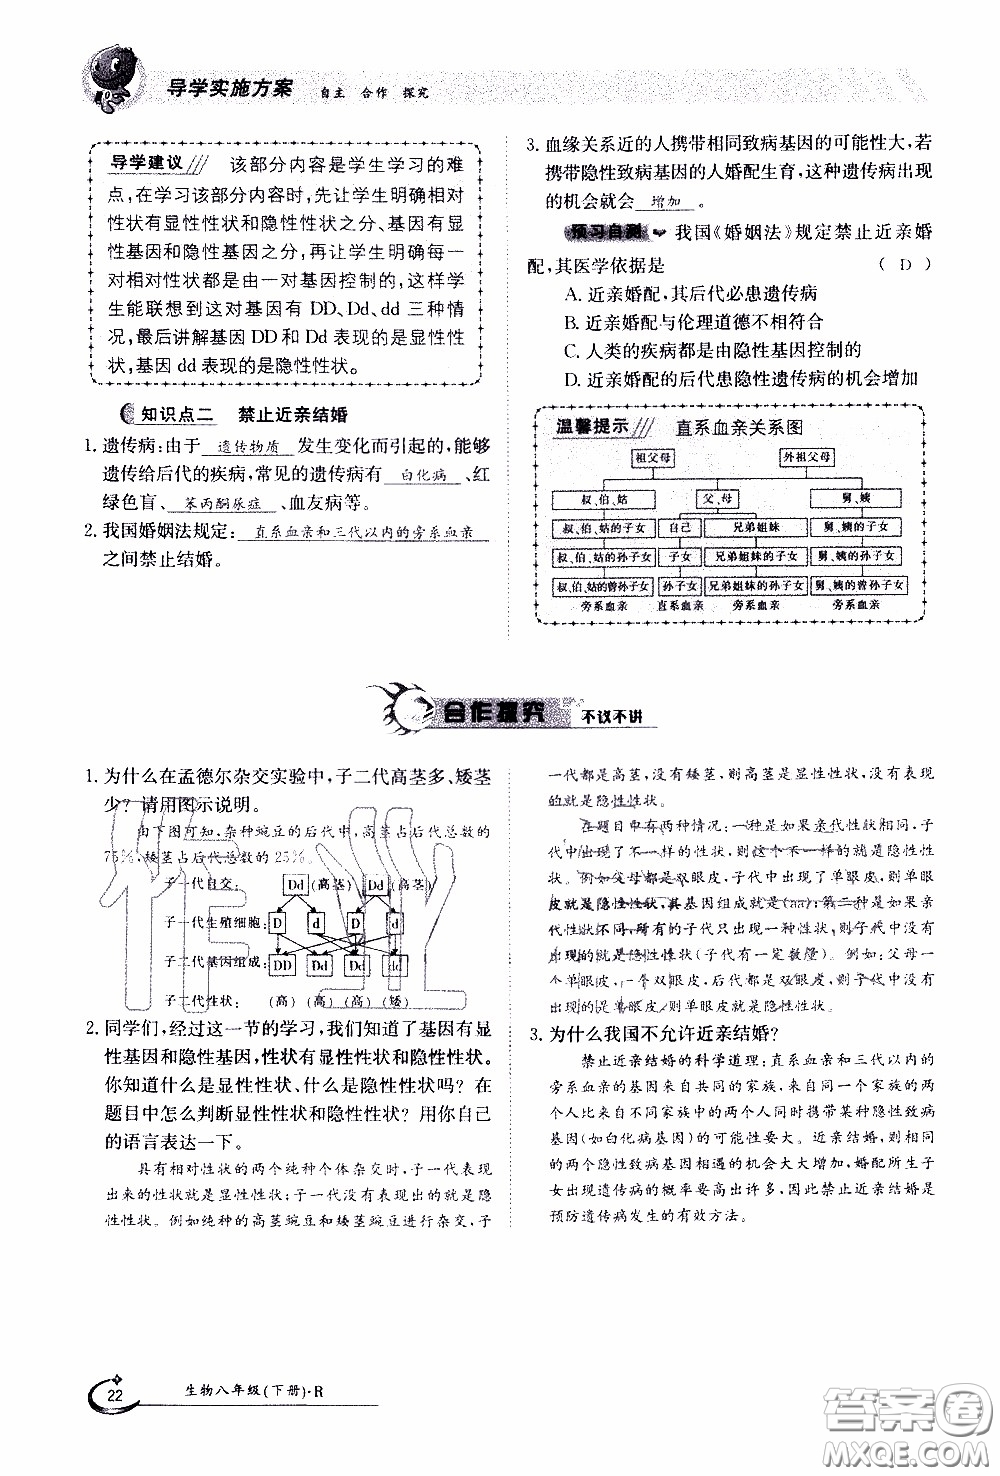 导学实施方案 自主 合作 探究
导学建议 该部分内容是学生学习的难
点,在学习该部分内容时,先让学生明确相对
性状有显性性状和隐性性状之分、基因有显
性基因和隐性基因之分,再让学生明确每一
对相对性状都是由一对基因控制的,这样学
生能联想到这对基因有 DD、Dd、dd 三种情
况,最后讲解基因 DD 和 Dd 表现的是显性性
状,基因 dd 表现的是隐性性状。
知识点二 禁止近亲结婚
1. 遗传病:由于 遗传物质 发生变化而引起的,能够
遗传给后代的疾病,常见的遗传病有 白化病 、红
绿色盲、 苯丙酮尿症 、血友病等。
2. 我国婚姻法规定: 直系血亲和三代以内的旁系血亲
之间禁止结婚。
3. 血缘关系近的人携带相同致病基因的可能性大,若
携带隐性致病基因的人婚配生育,这种遗传病出现
的机会就会 增加 。
预习自测 我国《婚姻法》规定禁止近亲婚
配,其医学依据是 ( D )
A. 近亲婚配,其后代必患遗传病
B. 近亲婚配与伦理道德不相符合
C. 人类的疾病都是由隐性基因控制的
D. 近亲婚配的后代患隐性遗传病的机会增加
温馨提示 直系血亲关系图
祖父母 外祖父母
叔、伯、姑 父、母 舅、姨
叔、伯、姑的子女 自己 兄弟姐妹 舅、姨的子女
叔、伯、姑的孙子女 子女 兄弟姐妹的子女 舅、姨的孙子女
叔、伯、姑的曾孙子女 孙子女 兄弟姐妹的孙子女 舅、姨的曾孙子女
旁系血亲 直系血亲 旁系血亲 旁系血亲
合作探究 不议不讲
1. 为什么在孟德尔杂交实验中,子二代高茎多、矮茎
少?请用图示说明。
由下图可知,杂种豌豆的后代中,高茎占后代总数的
75%,矮茎占后代总数的25%。
子一代自交: Dd (高茎) Dd (高茎)
子一代生殖细胞: D d D d
子二代基因组成: DD Dd Dd dd
子二代性状: (高) (高) (高) (矮)
2. 同学们,经过这一节的学习,我们知道了基因有显
性基因和隐性基因,性状有显性性状和隐性性状。
你知道什么是显性性状,什么是隐性性状吗?在
题目中怎么判断显性性状和隐性性状?用你自己
的语言表达一下。
具有相对性状的两个纯种个体杂交时,子一代表现
出来的性状就是显性性状;子一代没有表现出的就是隐
性性状。例如纯种的高茎豌豆和矮茎豌豆进行杂交,子
一代都是高茎,没有矮茎,则高茎是显性性状,没有表现
的就是隐性性状。
在题目中有两种情况:一种是如果亲代性状相同,子
代中出现了不一样的性状,则这个不一样的性状就是隐
性性状。例如父母都是双眼皮,子代出现了单眼皮,则单
眼皮就是隐性性状,其基因组成就是(aa);第二种是如果亲
代性状不同,所有的子代只出现一种性状,则子代没有出
现的性状就是隐性性状(子代有一定数量)。例如:父母一
个单眼皮,一个双眼皮,后代都是双眼皮,则子代中没有
出现的是单眼皮,则单眼皮就是隐性性状。
3. 为什么我国不允许近亲结婚?
禁止近亲结婚的科学道理:直系血亲和三代以内的
旁系血亲的基因来自共同的家族,来自一个家族的两
个人比来自不同家族中的两个人同时携带某种隐性致病
基因(如白化病基因)的可能性要大。近亲结婚,则相同
的两个隐性致病基因相遇的机会大大增加,婚配所生子
女出现遗传病的概率要高出许多,因此禁止近亲结婚是
预防遗传病发生的有效方法。
作业
22 生物八年级(下册)·R
答案圈
MXQE.COM